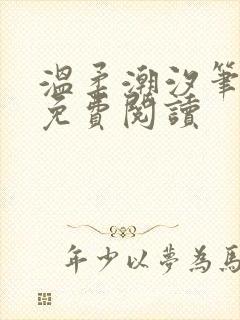 溫柔潮汐筆
免費閱讀
年少以夢為馬